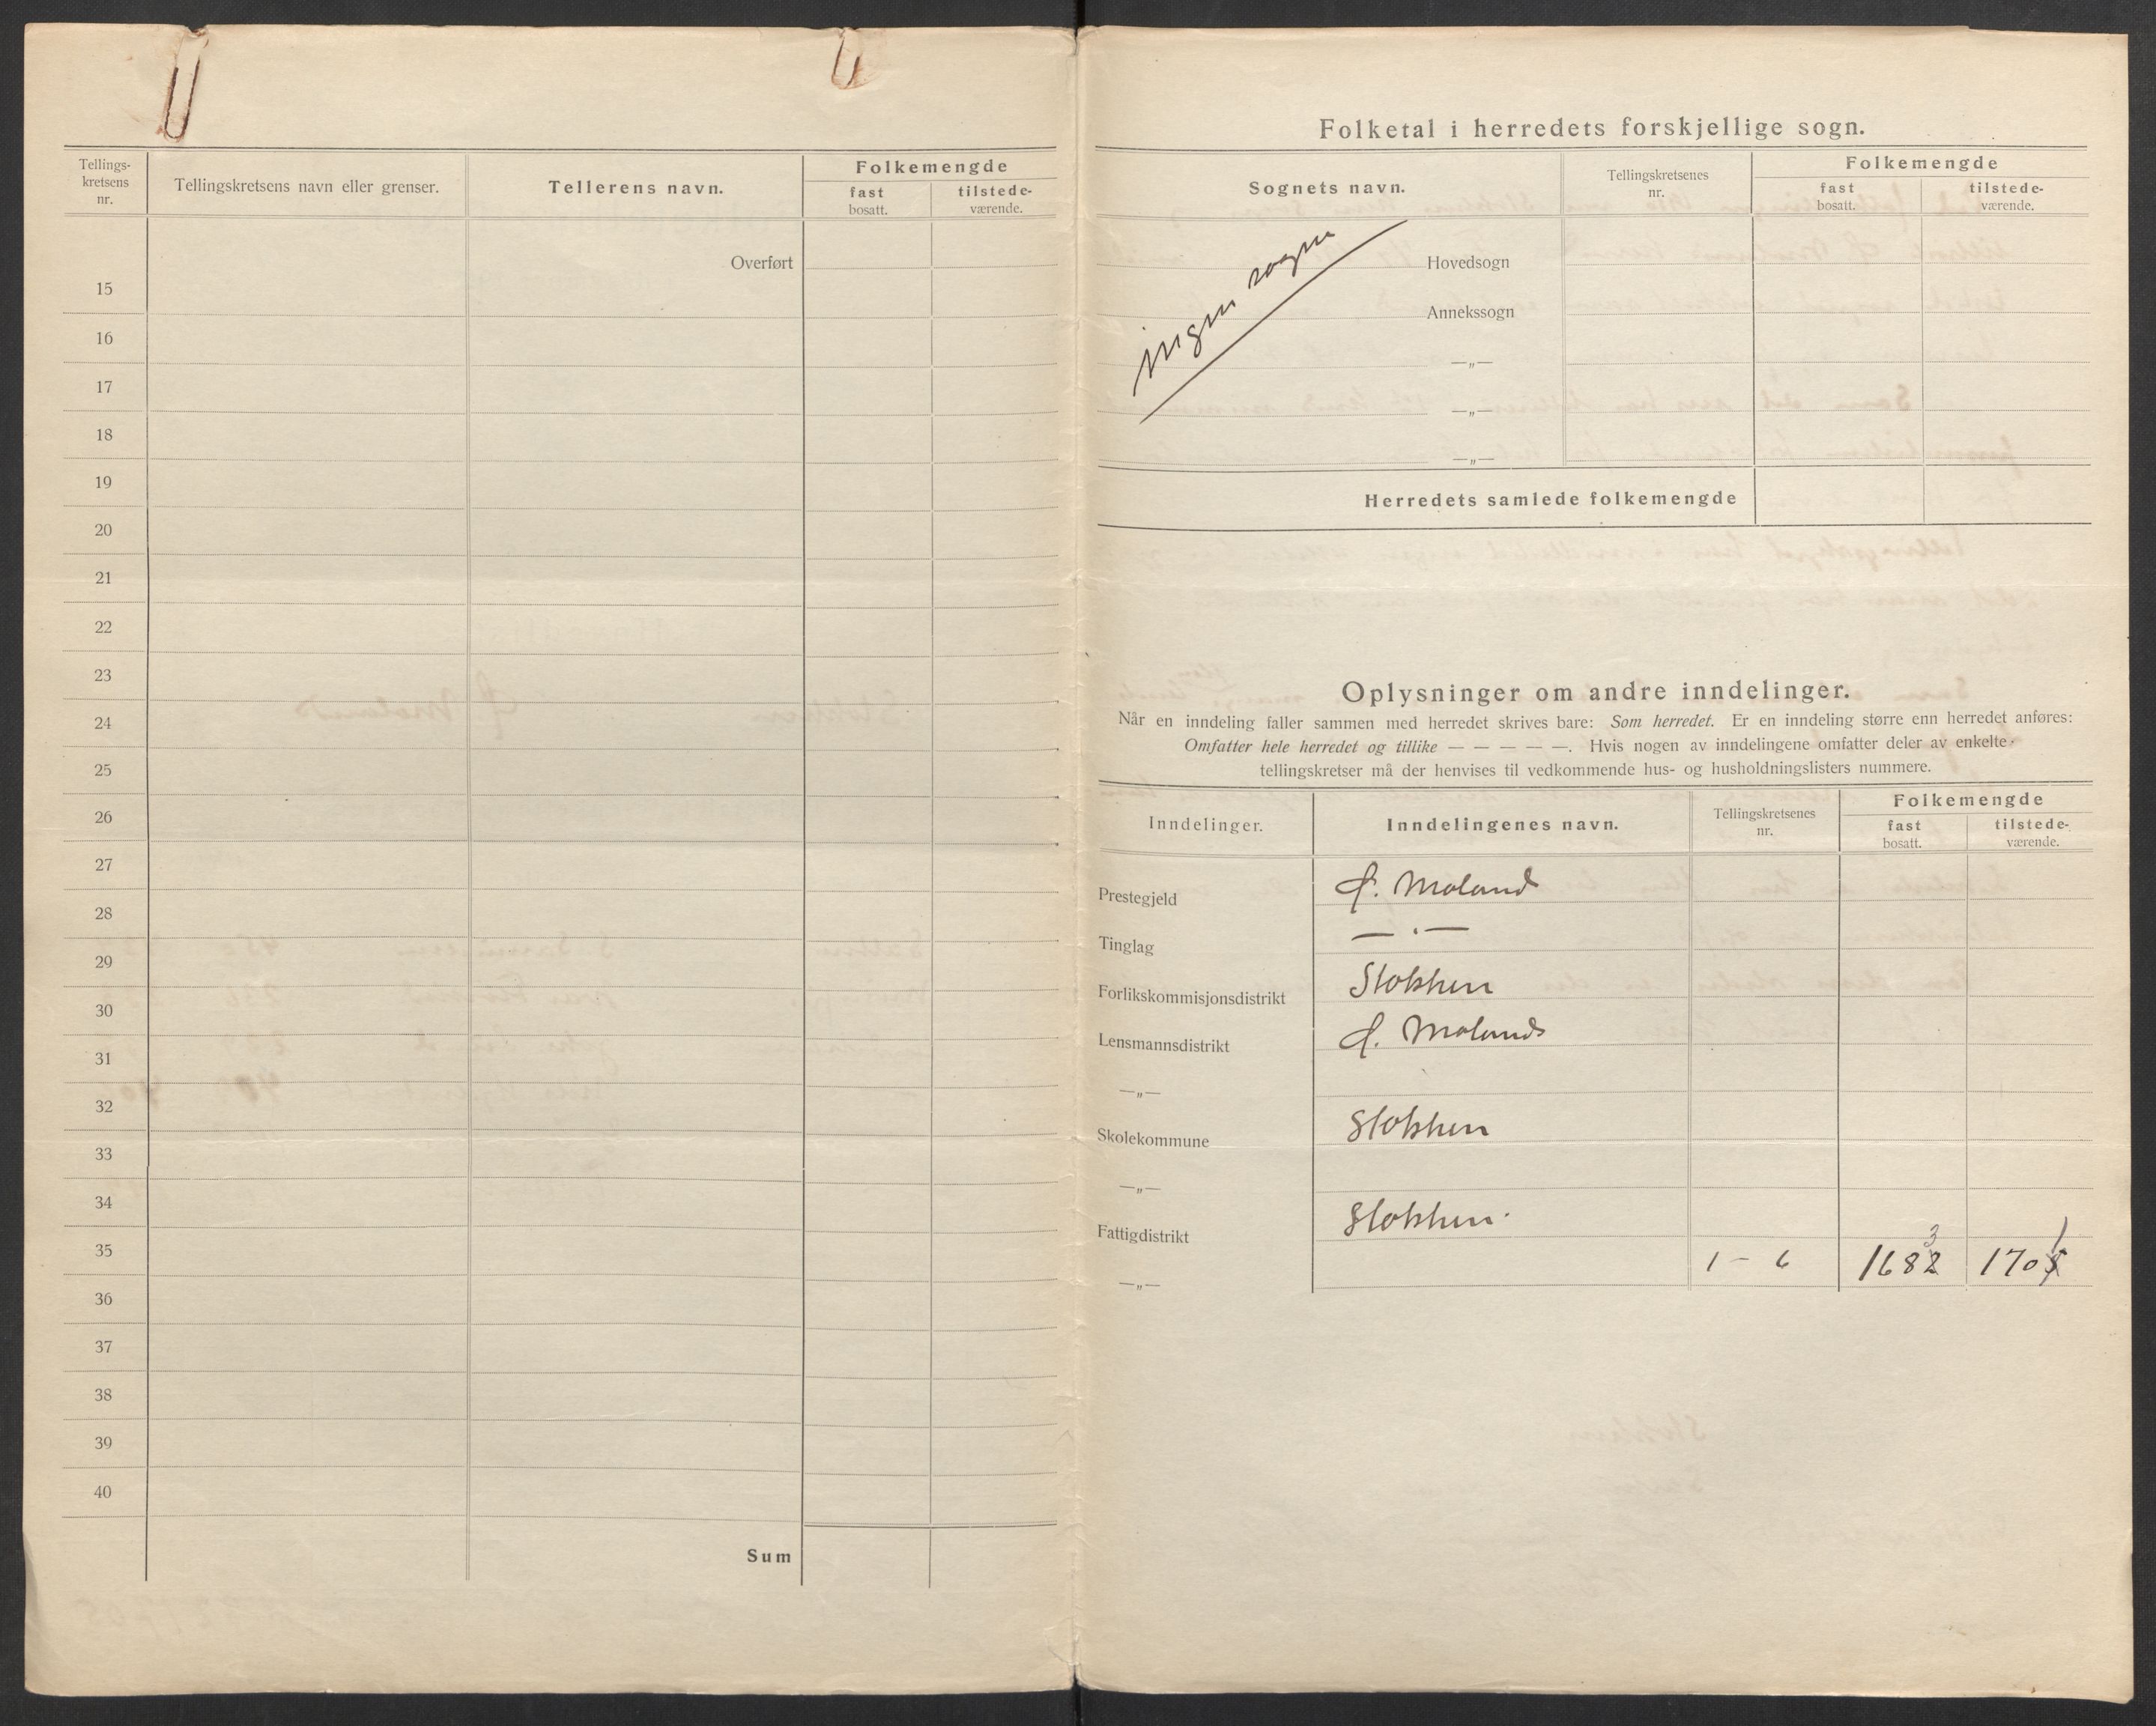 Tellings-
kretsens
nr.
Tellingskretsens navn eller grenser.
Tellerens navn.
Folkemengde
fast
bosatt.
tilstede-
værende.
Overført
15
16
17
18
19
20
21
22
23
24
25
26
27
28
29
30
31
32
33
34
35
36
37
38
39
40
Sum
Folketal i herredets forskjellige sogn.
Sognets navn.
Tellingskretsenes
nr.
Folkemengde
fast
bosatt.
tilstede-
værende.
ingen sogne
Hovedsogn
Annekssogn
—„—
—„—
—„—
Herredets samlede folkemengde
Oplysninger om andre inndelinger.
Når en inndeling faller sammen med herredet skrives bare: Som herredet. Er en inndeling større enn herredet anføres:
Omfatter hele herredet og tillike — — — — —. Hvis nogen av inndelingene omfatter deler av enkelte
tellingskretser må der henvises til vedkommende hus- og husholdningslisters nummere.
Inndelinger.
Inndelingenes navn.
Tellingskretsenes
nr.
Folkemengde
fast
bosatt.
tilstede-
værende.
Prestegjeld Ø. Moland
Tinglag — · —
Forlikskommisjonsdistrikt Stokken
Lensmannsdistrikt Ø. Moland
—„—
Skolekommune Stokken
—„—
Fattigdistrikt Stokken.
3 1
—„— 1 – 6 1682 1705